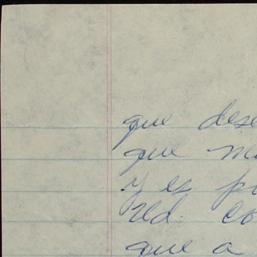 que dese
que me
y es p
Ud. co
que a